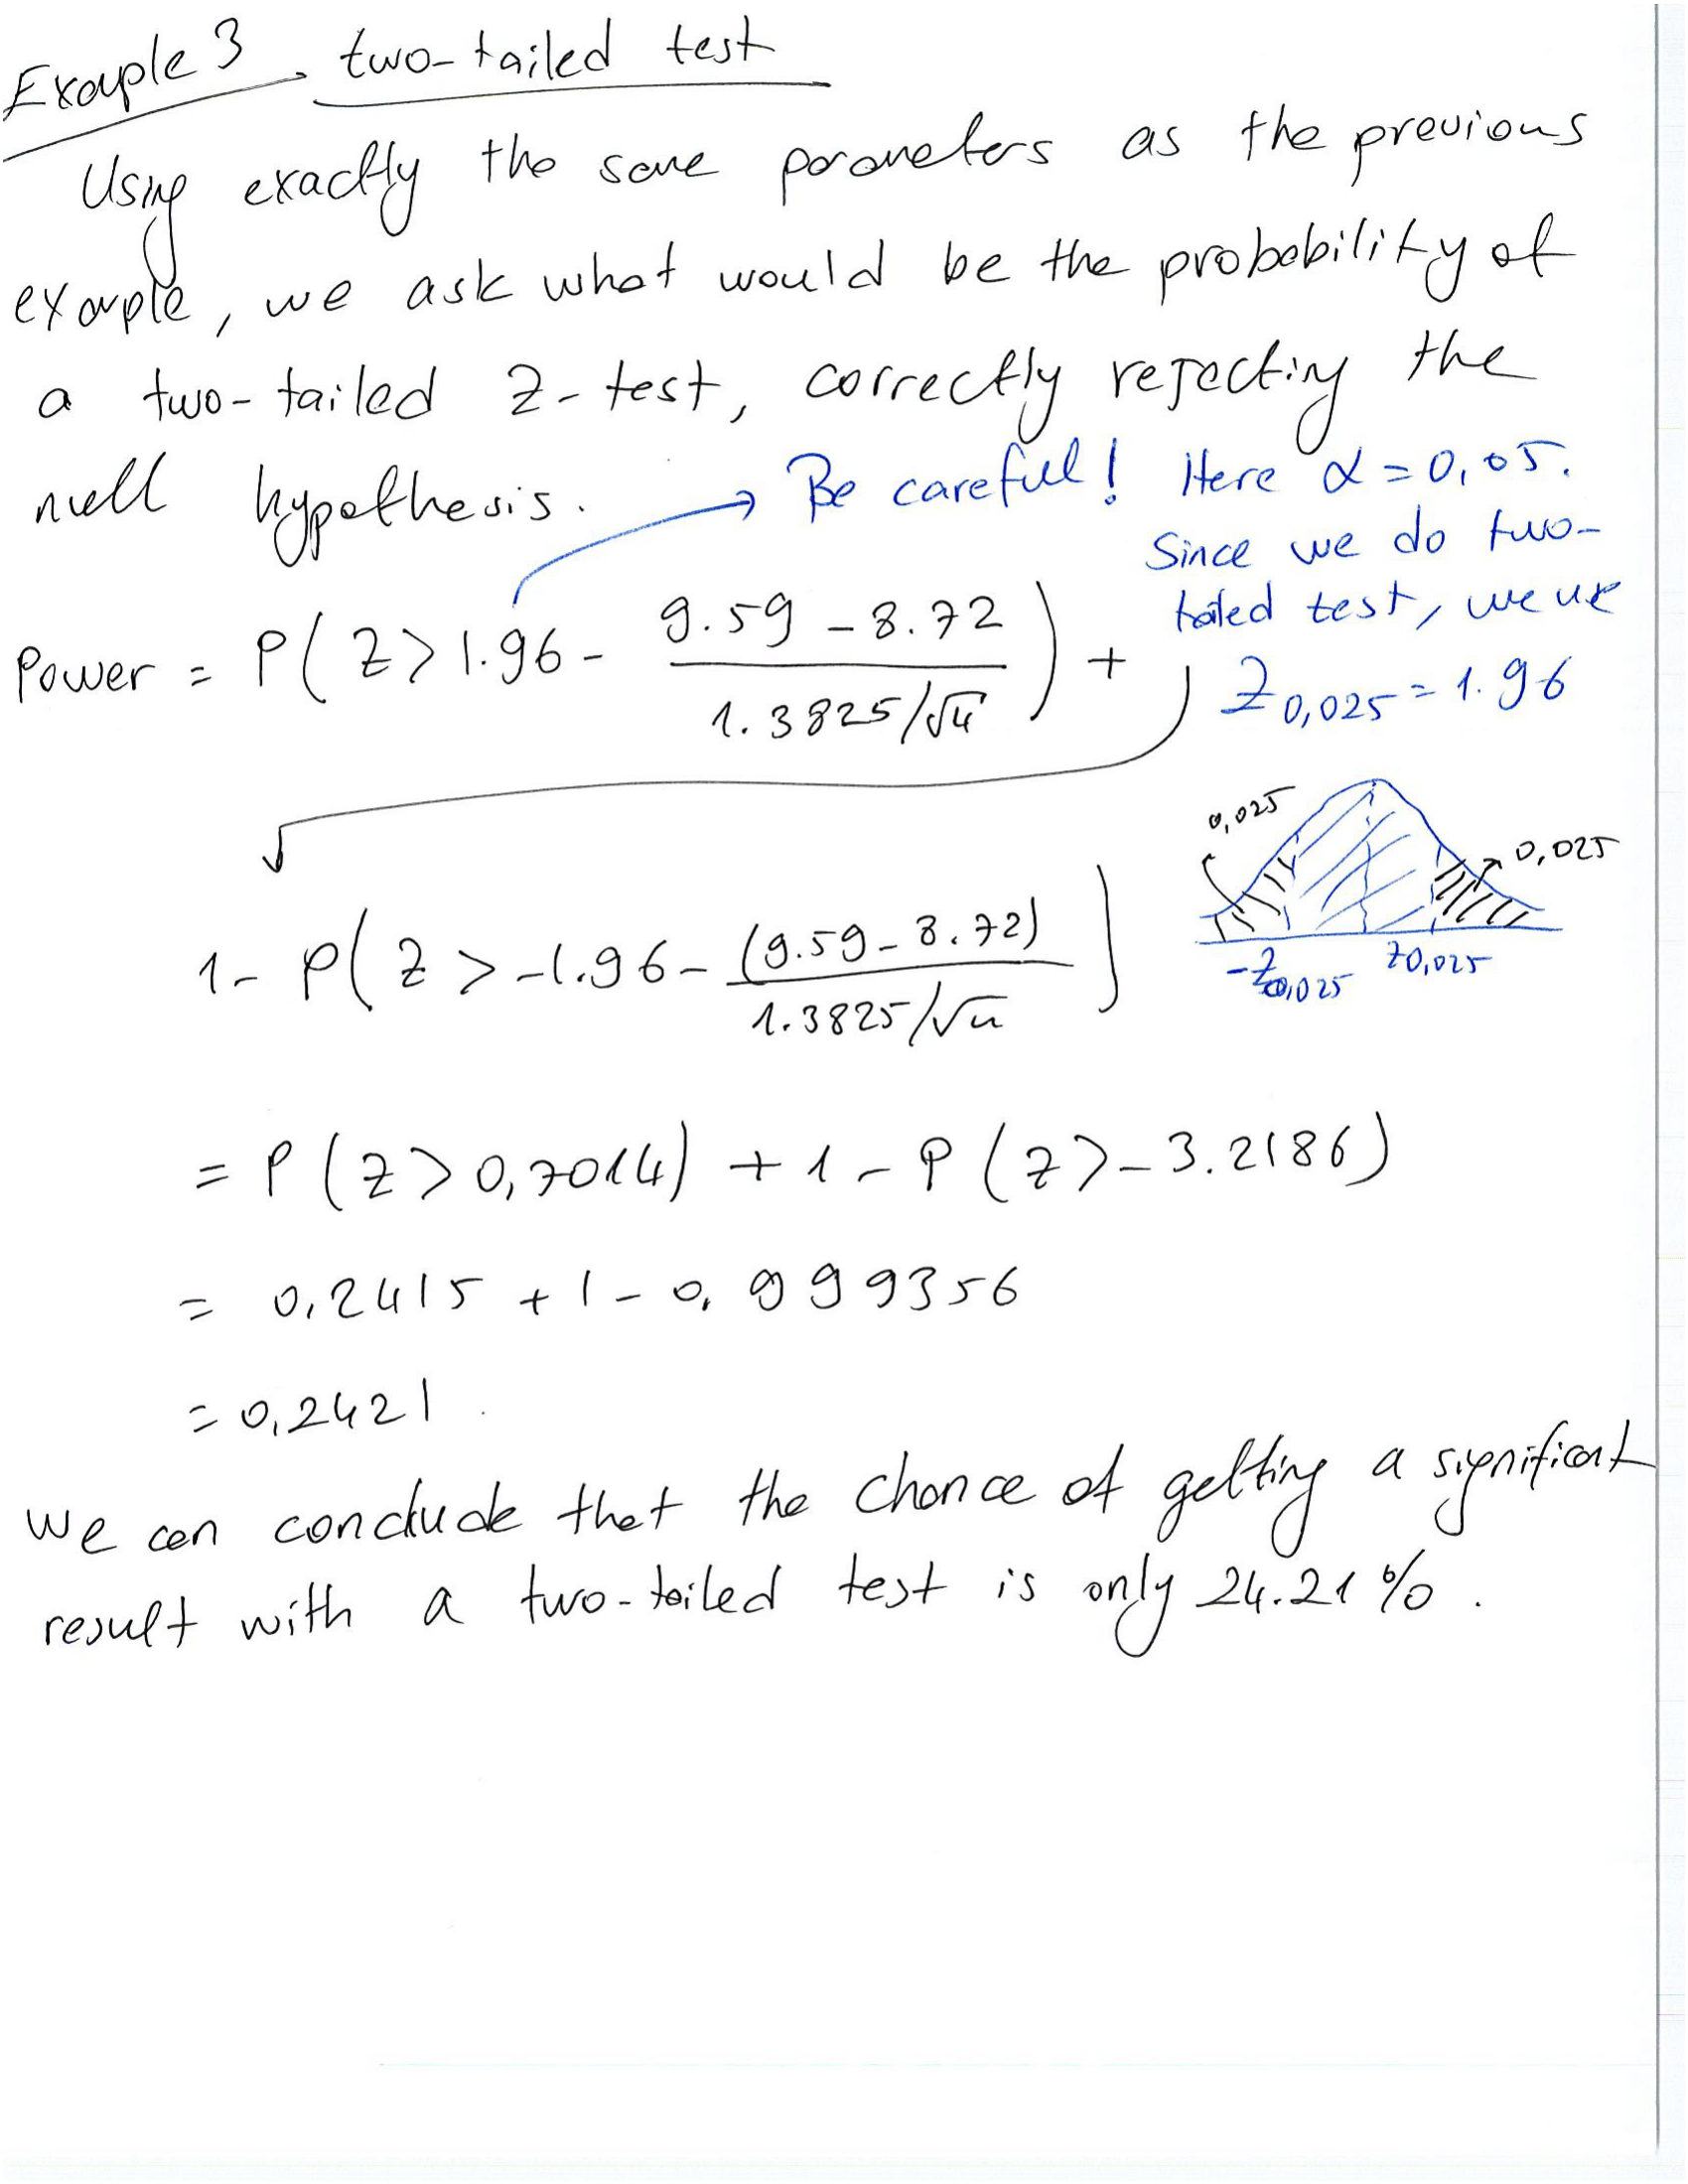 Example 3. two-tailed test
Using exactly the same parameters as the previous
example, we ask what would be the probability of
a two-tailed Z-test, correctly rejecting the
null hypothesis.
→ Be careful! Here α = 0,05.
Since we do two-
tailed test, we use
Z0,025 = 1.96
Power = P(Z > 1.96 - (9.59 - 8.72)/(1.3825/√4)) +
0,025
0,025
-Z0,025
Z0,025
1 - P(Z > -1.96 - (9.59 - 8.72)/(1.3825/√4))
= P(Z > 0,7014) + 1 - P(Z > -3.2186)
= 0,2415 + 1 - 0,999356
= 0,2421.
We can conclude that the chance of getting a significant
result with a two-tailed test is only 24.21%.